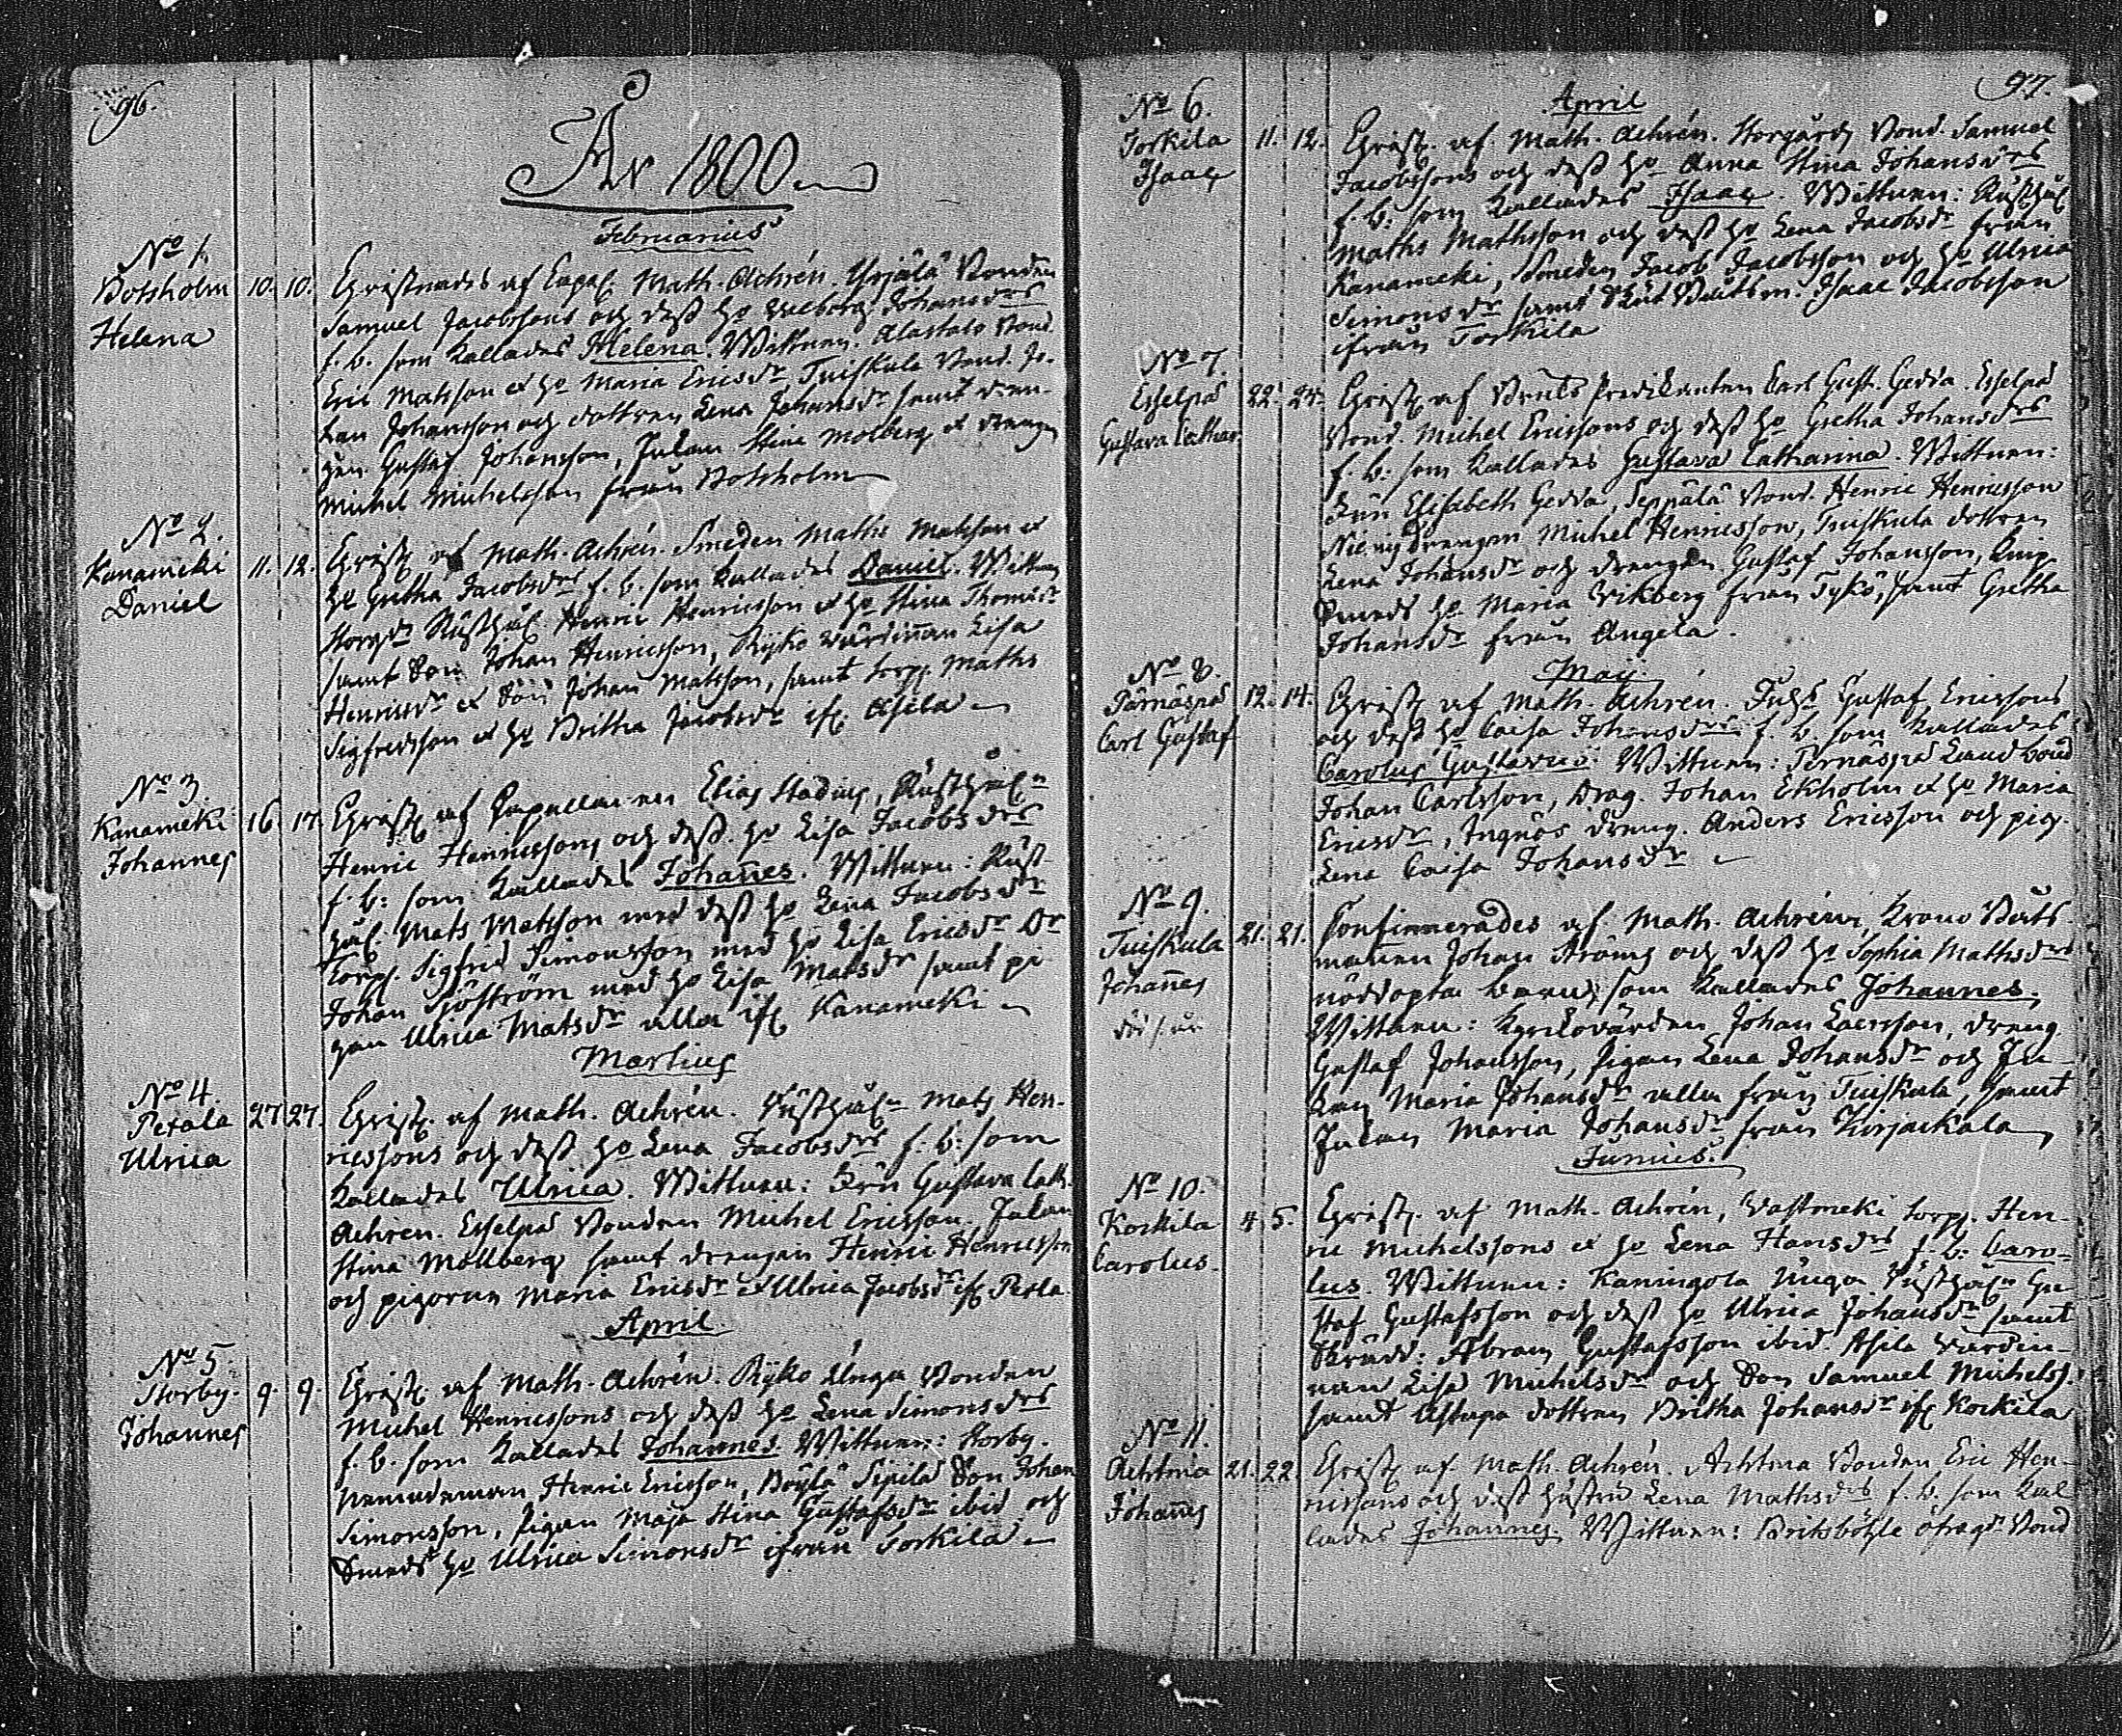 96.
År 1800
Februarius
No 1.
Botsholm 10. 10. Christnades af Capel. Math. Achrén. Yrjälä Bonden
Helena
Samuel Jacobssons och dess ho Walborg Johansdrs
f. b. som kallades Helena. Wittnen. Alastalo Bond.
Eric Matsson et ho Maria Ericsdr, Tuiskula Bond. Jo-
han Johansson och dottren Lena Johansdr samt dren-
gen Gustaf Johansson, Pukan Stina Molberg et drengen
Michel Michelsson från Botsholm
No 2.
Kanameki 11. 12. Christ. af Math. Achrén. Smeden Maths Matsson et
Daniel
ho Gretha Jacobsdrs f. b. som kallades Daniel. Wittnen
Storgds Rusthål. Henric Henricsson et ho Stina Thomsdr
samt Son Johan Henricsson, Ryko wärdinnan Lisa
Henricsdr et Son Johan Matsson, samt torp. Maths
Sigfredsson et ho Britha Jacobsdr if. Asila
No 3.
Kanameki 16 17. Christ. af Capellanen Elias Stadius, Rusthåln
Johannes
Henric Henricssons och dess ho Lisa Jacobsdrs
f. b: som kallades Johannes. Wittnen: Rust-
hål. Mats Matsson med dess ho Lena Jacobsdr
Torp. Sigfrid Simonsson med ho Lisa Ericsdr Dr
Johan Sjöström med ho Lisa Matsdr samt pi-
gan Ulrica Matsdr alla if. Kanameki
Martius
No 4.
Petala 27 27. Christ. af Math. Achrén. Rusthåln Mats Hen-
Ulrica
ricssons och dess ho Lena Jacobsdrs f. b: som
kallades Ulrica. Wittnen: Frn Gustava Cath.
Achren. Esselpä Bonden Michel Ericsson. Pukan
Stina Mollberg samt drengen Henric Henricsson
och pigorna Maria Ericsdr et Ulrica Jacobsdr if. Petla
April.
No 5.
Storby. 9. 9. Christ. af Math. Achrén. Ryko Unga Bonden
Johannes
Michel Henricssons och dess ho Lena Simonsdrs
f. b. som kallades Johannes. Wittnen: Storby.
Nemndeman Henric Ericsson, Böylä Sipilä Son Johan
Simonsson, pigan Maja Stina Gustafsdr ibid och
Smeds ho Ulrica Simonsdr ifrån Torkila
97.
April
No 6.
Torkila 11. 12. Christ. af Math. Achrén. Storgårds Bond. Samuel
Isaac
Jacobssons och dess ho Anna Stina Johansdrs
f. b: som kallades Isaac. Wittnen: Rusthål.
Maths Mathsson och dess ho Lena Jacobsdr från
Kanameki, Smeden Jacob Jacobsson och ho Ulrica
Simonsdr samt Båtsm. Isaac Jacobsson
ifrån Torkila
No 7.
Esselpä 22. 24. Christ. af Bruks Predikanten Carl Gust. Gedda. Esselpä
Gustava Cathar.
Bond. Michel Ericssons och dess ho Gretha Johansdrs
f. b: som kallades Gustava Catharina. Wittnen:
Elisabeth Gedda, Seppälä Bond. Henric Henricsson
drengen Michel Henricsson, Tuiskula dottren
Lena Johansdr och drengen Gustaf Johansson,
Smeds ho Maria Wikberg från Tykö, samt Gretha
Johansdr från Angela.
Maij.
No 8.
Pärnäspä 12. 14. Christ. af Math. Achrén. Gustaf Ericssons
Carl Gustaf
och dess ho Caisa Johansdrs f. b. som kallades
Carolus Gustavus. Wittnen: Pernäspä Landbond
Johan Carlsson, Drag. Johan Ekholm et ho Maria
Ericsdr, Ingnäs dreng. Anders Ericsson och pig.
Lena Caisa Johansdr
No 9.
Tuiskula 21. 21. Confirmerades af Math. Achrén, Krono Båts-
Johannes
mannen Johan Ströms och dess ho Sophia Mathsdrs
nöddöpta barn, som kallades Johannes.
Wittnen: Kyrkovärden Johan Larsson, dreng
Gustaf Johansson, pigan Lena Johansdr och Pu-
kan Maria Johansdr alla från Tuiskula, samt
Pukan Maria Johansdr från Kirjackala
Junius.
No 10.
Korkila 4 5. Christ. af Math. Achrén, Vastmeki torp. Hen-
Carolus.
ric Michelssons et ho Lena Hansdrs f. b: Caro-
lus. Wittnen: Kaningola Unga Rusthåln Gu-
staf Gustafsson och dess ho Ulrica Johansdr samt
Skrädd: Abram Gustafsson ibid. Asila Wärdin-
nan Lisa Michelsdr och Son Samuel Michelss.
samt Ustupa dottren Britha Johansdr if. Korkila
No 11.
Achtma 21. 22. Christ. af Math. Achrén. Achtma Bonden Eric Hen-
Johannes
ricssons och dess hustru Lena Mathsdrs f. b. som kal-
lades Johannes. Wittnen: Britsböhle Bond